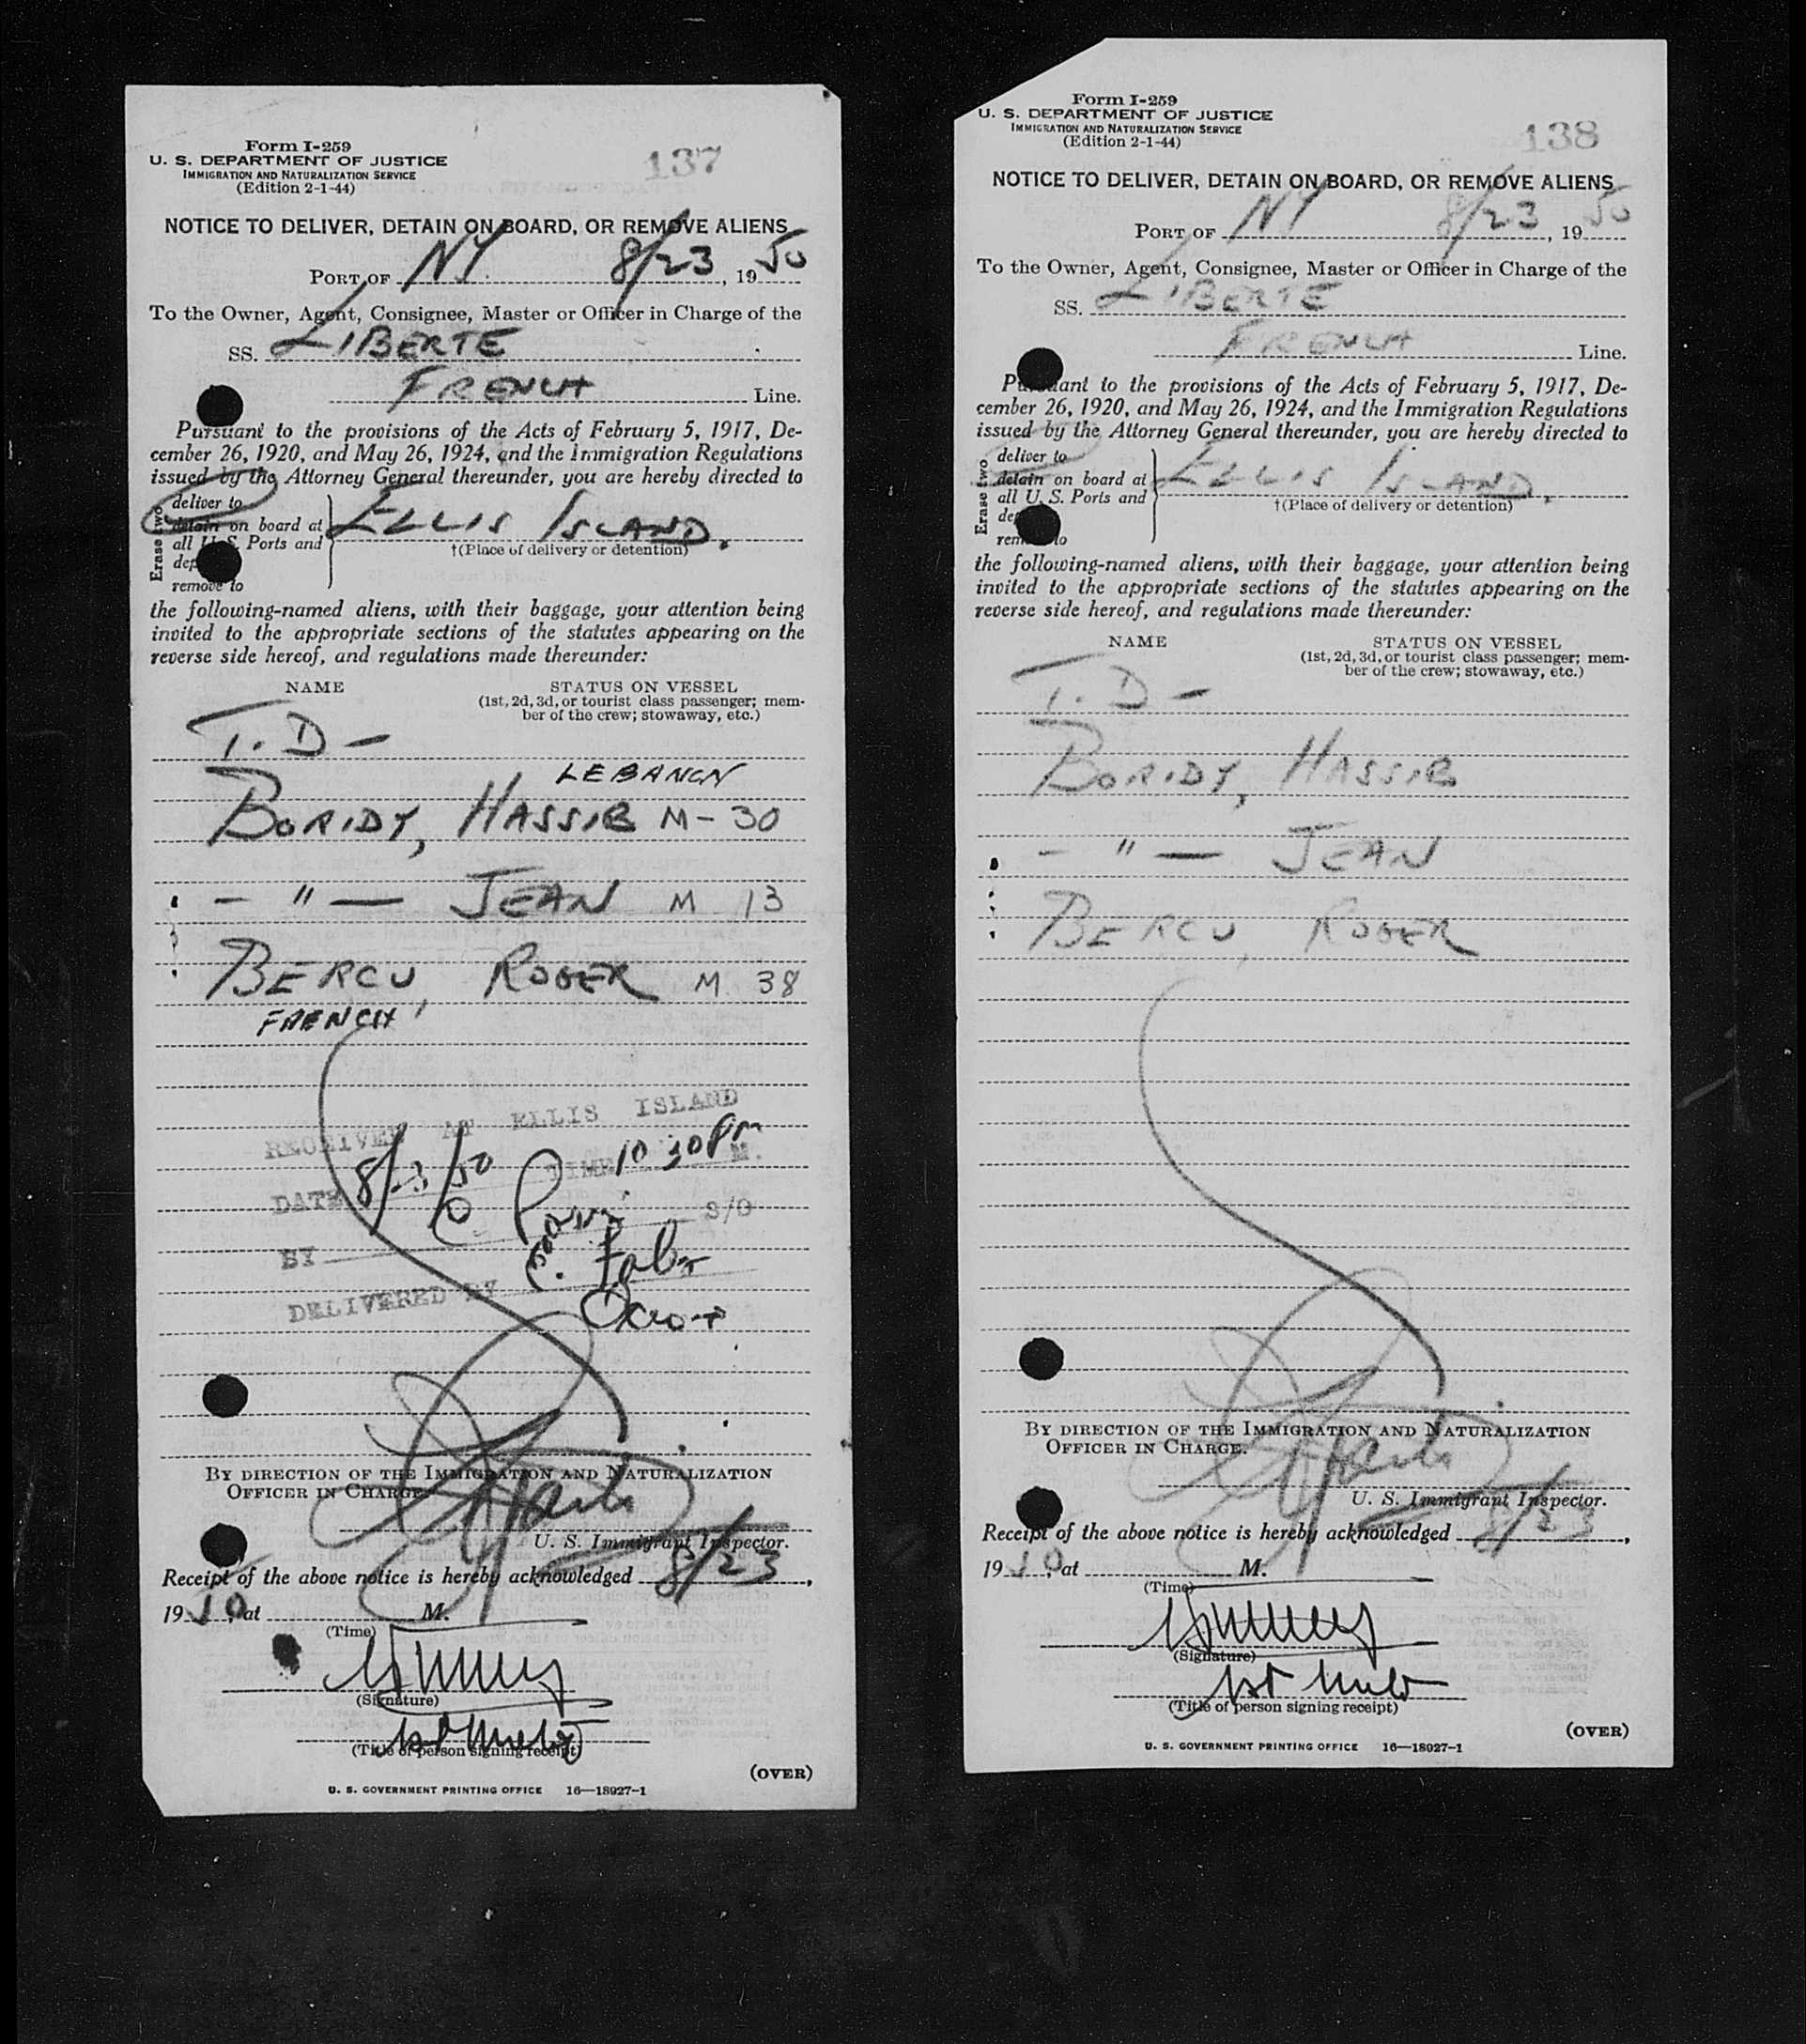 Form I-259
U. S. DEPARTMENT OF JUSTICE
IMMIGRATION AND NATURALIZATION SERVICE
(Edition 2-1-44)
137
NOTICE TO DELIVER, DETAIN ON BOARD, OR REMOVE ALIENS
PORT OF NY 8/23, 1950
To the Owner, Agent, Consignee, Master or Officer in Charge of the
SS. LIBERTE
FRENCH Line.
Pursuant to the provisions of the Acts of February 5, 1917, De-
cember 26, 1920, and May 26, 1924, and the Immigration Regulations
issued by the Attorney General thereunder, you are hereby directed to
Erase two
deliver to
detain on board at
all U. S. Ports and
dep
remove to
ELLIS ISLAND.
†(Place of delivery or detention)
the following-named aliens, with their baggage, your attention being
invited to the appropriate sections of the statutes appearing on the
reverse side hereof, and regulations made thereunder:
NAME STATUS ON VESSEL
(1st, 2d, 3d, or tourist class passenger; mem-
ber of the crew; stowaway, etc.)
T. D -
LEBANON
BORIDY, HASSIB M - 30
- " - JEAN M 13
BERCU, ROGER M 38
FRENCH
RECEIVED AT ELLIS ISLAND
DATE 8/23/50 TIME 10 30 PM M.
BY S/O
DELIVERED BY
BY DIRECTION OF THE IMMIGRATION AND NATURALIZATION
OFFICER IN CHARGE.
U. S. Immigrant Inspector.
Receipt of the above notice is hereby acknowledged 8/23,
1950, at M.
(Time)
(Signature)
(Title of person signing receipt)
(OVER)
U. S. GOVERNMENT PRINTING OFFICE 16—18927-1
Form I-259
U. S. DEPARTMENT OF JUSTICE
IMMIGRATION AND NATURALIZATION SERVICE
(Edition 2-1-44)
138
NOTICE TO DELIVER, DETAIN ON BOARD, OR REMOVE ALIENS
PORT OF NY 8/23, 1950
To the Owner, Agent, Consignee, Master or Officer in Charge of the
SS. LIBERTE
FRENCH Line.
Pursuant to the provisions of the Acts of February 5, 1917, De-
cember 26, 1920, and May 26, 1924, and the Immigration Regulations
issued by the Attorney General thereunder, you are hereby directed to
Erase two
deliver to
detain on board at
all U. S. Ports and
de
remove to
ELLIS ISLAND.
†(Place of delivery or detention)
the following-named aliens, with their baggage, your attention being
invited to the appropriate sections of the statutes appearing on the
reverse side hereof, and regulations made thereunder:
NAME STATUS ON VESSEL
(1st, 2d, 3d, or tourist class passenger; mem-
ber of the crew; stowaway, etc.)
T. D -
BORIDY, HASSIB
- " - JEAN
BERCU, ROGER
BY DIRECTION OF THE IMMIGRATION AND NATURALIZATION
OFFICER IN CHARGE.
U. S. Immigrant Inspector.
Receipt of the above notice is hereby acknowledged 8/23,
1950, at M.
(Time)
(Signature)
(Title of person signing receipt)
(OVER)
U. S. GOVERNMENT PRINTING OFFICE 16—18927-1